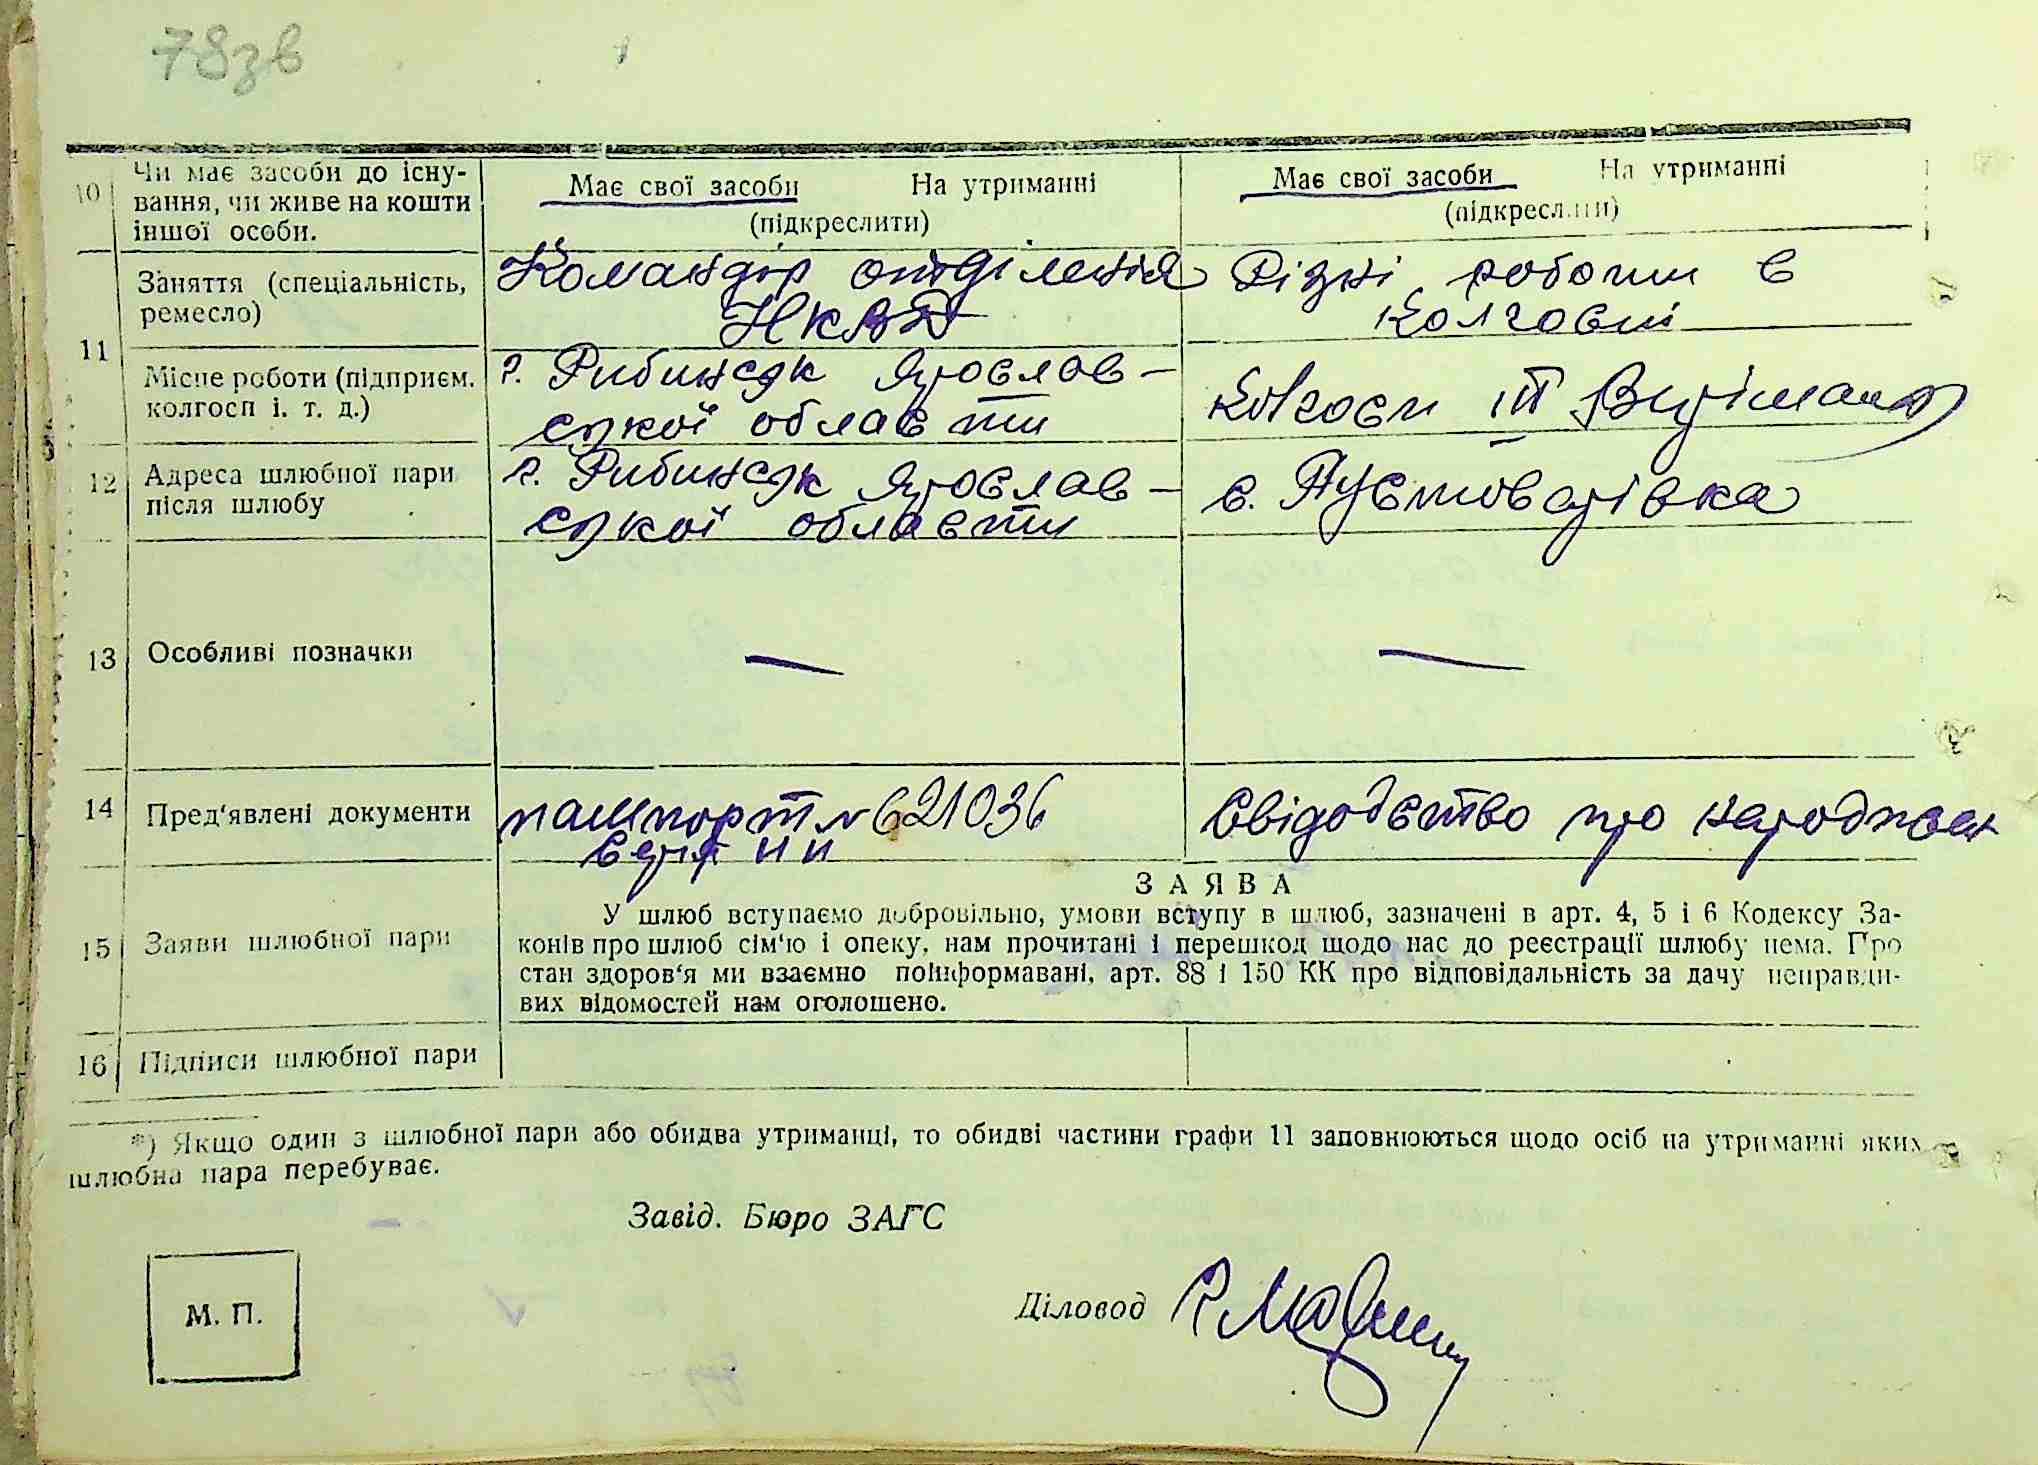 78зв
10 Чи має засоби до існу-
вання, чи живе на кошти
іншої особи.
Має свої засоби На утриманні
(підкреслити)
Має свої засоби На утриманні
(підкреслити)
11
Заняття (спеціальність,
ремесло)
Командір отділенія
НКВД
Різні роботи в
Колгоспі
Місце роботи (підприєм.
колгосп і. т. д.)
г. Рибинськ Ярослав-
ської області
Колгосп ІІІ
12 Адреса шлюбної пари
після шлюбу
г. Рибинськ Ярослав-
ської області
с. Пустоварівка
13 Особливі позначки
— —
14 Пред'явлені документи
пашпорт № 621036
Серія
Свідодство про народжен
15 Заяви шлюбної пари
ЗАЯВА
У шлюб вступаємо добровільно, умови вступу в шлюб, зазначені в арт. 4, 5 і 6 Кодексу За-
конів про шлюб сім'ю і опеку, нам прочитані і перешкод щодо нас до реєстрації шлюбу нема. Про
стан здоров'я ми взаємно поінформавані, арт. 88 і 150 КК про відповідальність за дачу неправди-
вих відомостей нам оголошено.
16 Підписи шлюбної пари
*) Якщо один з шлюбної пари або обидва утриманці, то обидві частини графи 11 заповнюються щодо осіб на утриманні яких
шлюбна пара перебуває.
Завід. Бюро ЗАГС
М. П.
Діловод